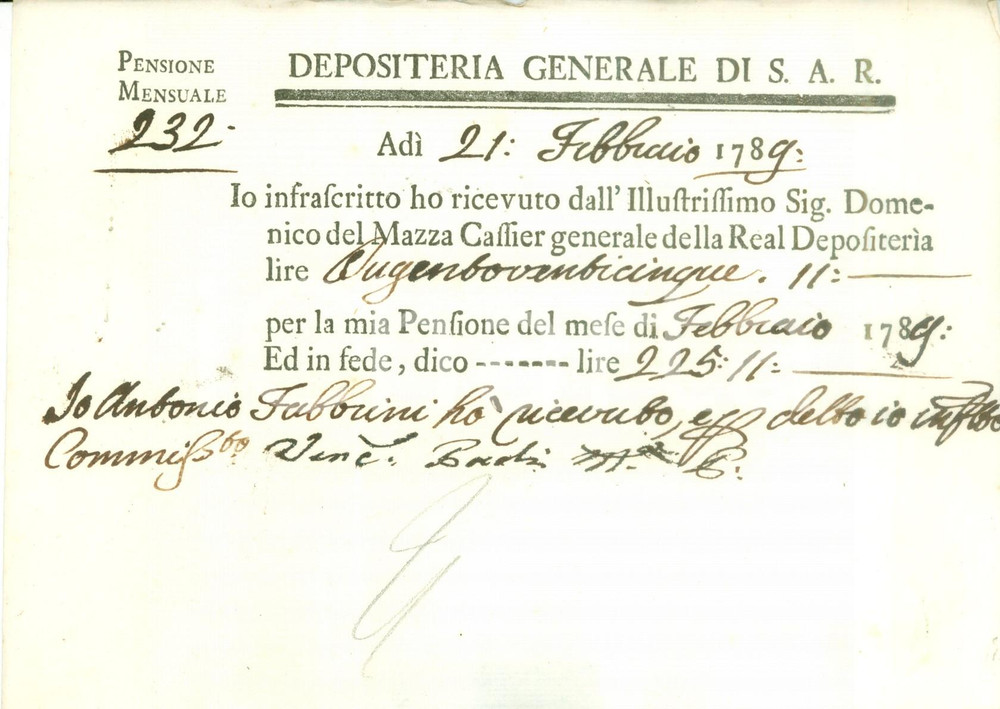 PENSIONE
MENSUALE
232.
DEPOSITERIA GENERALE DI S. A. R.
Adì 21: Febbraio 1789:
Io infraſcritto ho ricevuto dall' Illuſtriſſimo Sig. Dome-
nico del Mazza Caſſier generale della Real Depoſiterìa
lire Dugentoventicinque. 11:
per la mia Penſione del meſe di Febbraio 1789:
Ed in fede, dico ------- lire 225: 11:
Io Antonio Fabbrini ho ricevuto, e p detto io infstto
Commiss.to Vinc.